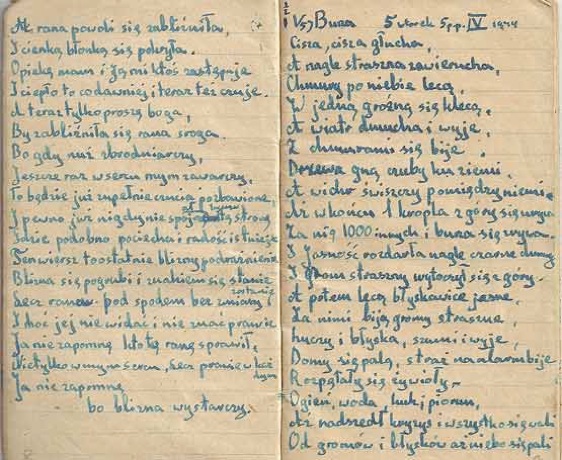 Aż rana powoli się zabliźniła,
I cienką błonką się pokryła.
Opiekę mam i Ją mi ktoś zastępuje
I ciepło to co dawniej i teraz też czuje.
A teraz tylko proszę boga,
By zabliźniła się rana sroga.
Bo gdy nuż zbrodniarczy,
Jeszcze raz w sercu mym zawarczy,
To będzie już zupełnie czucia pozbawione,
I pewno już nigdy nie w tą stronę
Gdzie podobno pociecha i radość istnieje
Ten wiersz to ostatnie blizny podrażnienie
Blizna się pogrubi i znakiem się stanie
zostanie
Lecz rana pod spodem bez zmiany
I choć jej nie widać i nie znać prawie
Ja nie zapomnę kto tę ranę sprawił,
Nie tylko w mym sercu, lecz prawie w każ
Ja nie zapomnę
bo blizna wystarczy.
V57 Burza 5 wtorek 5 p.p. IV 1944
Cisza, cisza głucha,
A nagle straszna zawierucha,
Chmury po niebie lecą,
W jedną groźną się klecą,
A wiatr dmucha i wyje,
Z chmurami się bije
Drzewa gną czuby ku ziemi,
A wicher świszczy pomiędzy niemi.
Aż w końcu 1 kropla z góry się urywa
Za nią 1000 innych i burza się zrywa.
I Jasność rozdarła nagle czarne chmury
I grom straszny wytoczył się z góry.
A potem lecą błyskawice jasne,
Za nimi biją gromy straszne,
huczy i błyska, szumi i wyje,
Domy się palą, straż na alarm bije
Rozpętały się żywioły,
Ogień, woda, huk i piorun,
Aż nadszedł kryzys i wszystko się wali
Od gromów i błysków aż niebo się pali